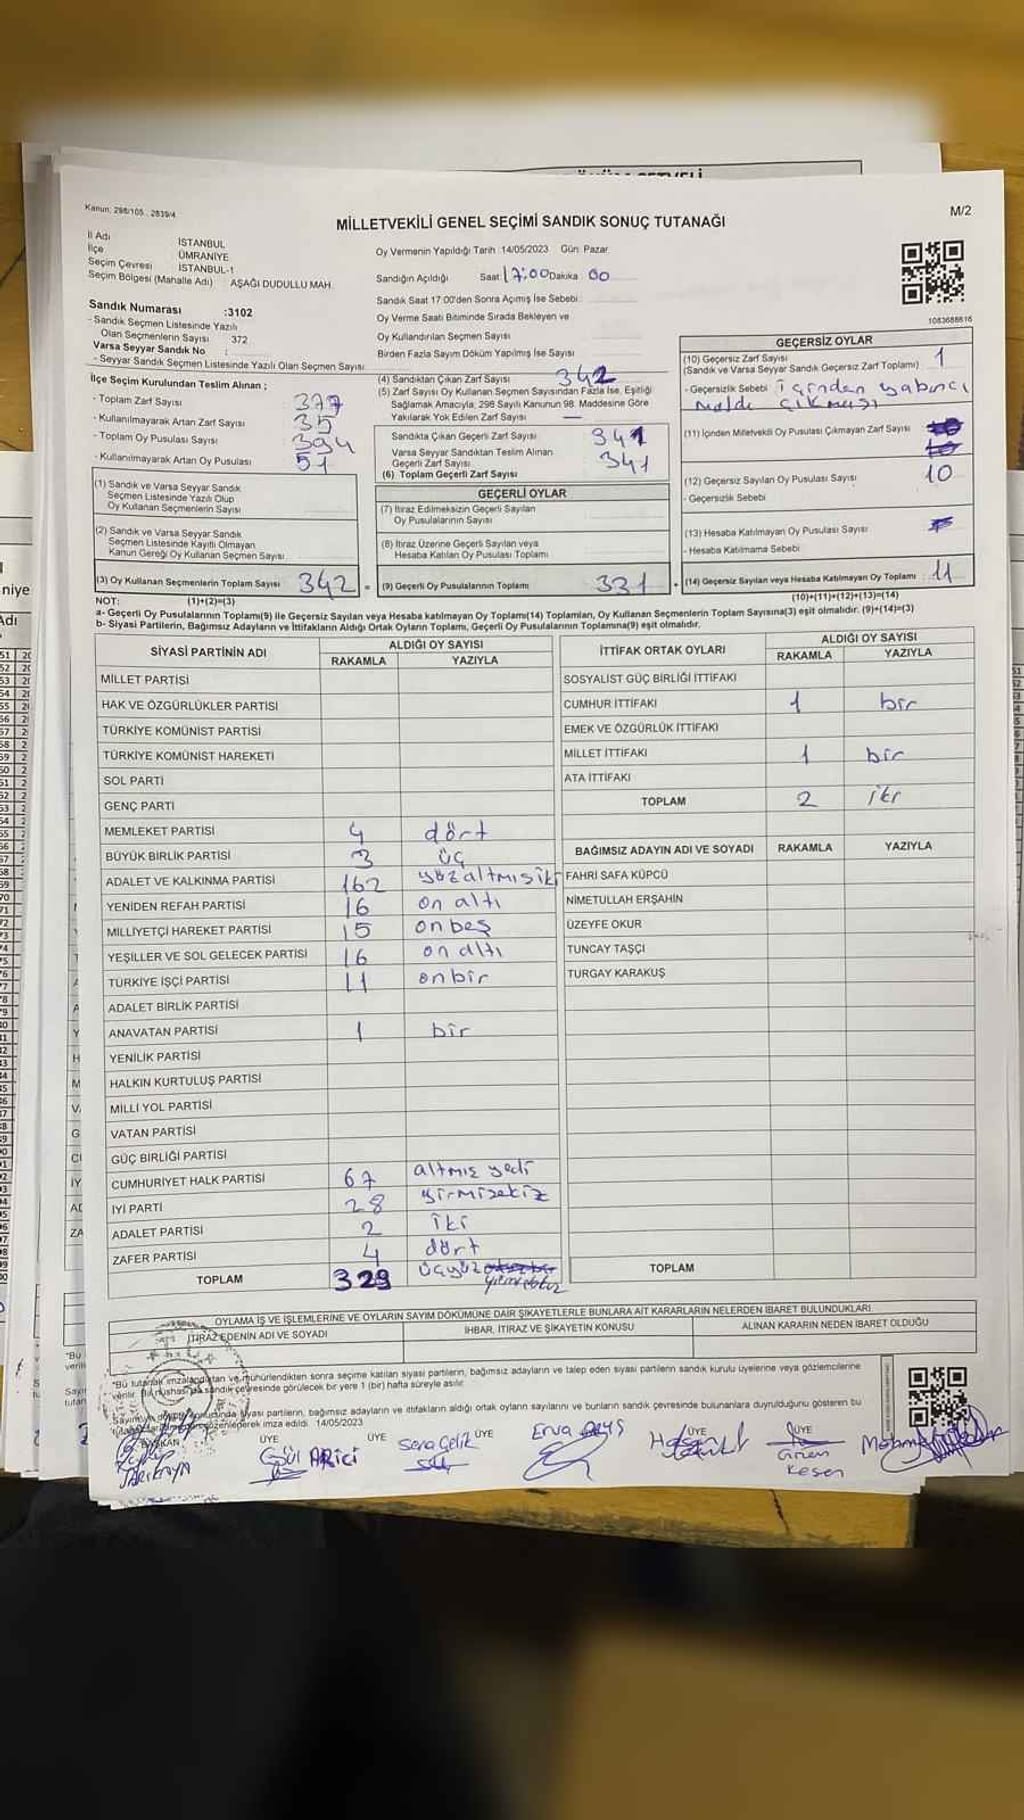 Kanun: 298/105 , 2839/4
M/2
MİLLETVEKİLİ GENEL SEÇİMİ SANDIK SONUÇ TUTANAĞI
İl Adı İSTANBUL
İlçe ÜMRANİYE
Seçim Çevresi İSTANBUL-1
Seçim Bölgesi (Mahalle Adı) AŞAĞI DUDULLU MAH.
Sandık Numarası :3102
- Sandık Seçmen Listesinde Yazılı
Olan Seçmenlerin Sayısı 372
Varsa Seyyar Sandık No :
- Seyyar Sandık Seçmen Listesinde Yazılı Olan Seçmen Sayısı
Oy Vermenin Yapıldığı Tarih :14/05/2023 Gün: Pazar
Sandığın Açıldığı Saat: 17:00 Dakika 00
Sandık Saat 17:00'den Sonra Açımış İse Sebebi
Oy Verme Saati Bitiminde Sırada Bekleyen ve
Oy Kullandırılan Seçmen Sayısı
Birden Fazla Sayım Döküm Yapılmış İse Sayısı
1083688616
İlçe Seçim Kurulundan Teslim Alınan ;
- Toplam Zarf Sayısı 377
- Kullanılmayarak Artan Zarf Sayısı 35
- Toplam Oy Pusulası Sayısı 394
- Kullanılmayarak Artan Oy Pusulası 51
(1) Sandık ve Varsa Seyyar Sandık
Seçmen Listesinde Yazılı Olup
Oy Kullanan Seçmenlerin Sayısı
(2) Sandık ve Varsa Seyyar Sandık
Seçmen Listesinde Kayıtlı Olmayan
Kanun Gereği Oy Kullanan Seçmen Sayısı
(3) Oy Kullanan Seçmenlerin Toplam Sayısı 342 =
(4) Sandıktan Çıkan Zarf Sayısı 342
(5) Zarf Sayısı Oy Kullanan Seçmen Sayısından Fazla İse, Eşitliği
Sağlamak Amacıyla, 298 Sayılı Kanunun 98. Maddesine Göre
Yakılarak Yok Edilen Zarf Sayısı —
Sandıkta Çıkan Geçerli Zarf Sayısı 341
Varsa Seyyar Sandıktan Teslim Alınan
Geçerli Zarf Sayısı 341
(6) Toplam Geçerli Zarf Sayısı
GEÇERLİ OYLAR
(7) İtiraz Edilmeksizin Geçerli Sayılan
Oy Pusulalarının Sayısı
(8) İtiraz Üzerine Geçerli Sayılan veya
Hesaba Katılan Oy Pusulası Toplamı
(9) Geçerli Oy Pusulalarının Toplamı 331 +
GEÇERSİZ OYLAR
(10) Geçersiz Zarf Sayısı 1
(Sandık ve Varsa Seyyar Sandık Geçersiz Zarf Toplamı)
- Geçersizlik Sebebi içinden yabancı
madde çıkması
(11) İçinden Milletvekili Oy Pusulası Çıkmayan Zarf Sayısı
(12) Geçersiz Sayılan Oy Pusulası Sayısı 10
- Geçersizlik Sebebi
(13) Hesaba Katılmayan Oy Pusulası Sayısı
- Hesaba Katılmama Sebebi
(14) Geçersiz Sayılan veya Hesaba Katılmayan Oy Toplamı 11
NOT: (1)+(2)=(3)
(10)+(11)+(12)+(13)=(14)
a- Geçerli Oy Pusulalarının Toplamı(9) ile Geçersiz Sayılan veya Hesaba katılmayan Oy Toplamı(14) Toplamları, Oy Kullanan Seçmenlerin Toplam Sayısına(3) eşit olmalıdır. (9)+(14)=(3)
b- Siyasi Partilerin, Bağımsız Adayların ve İttifakların Aldığı Ortak Oyların Toplamı, Geçerli Oy Pusulalarının Toplamına(9) eşit olmalıdır.
SİYASİ PARTİNİN ADI ALDIĞI OY SAYISI
RAKAMLA YAZIYLA
MİLLET PARTİSİ
HAK VE ÖZGÜRLÜKLER PARTİSİ
TÜRKİYE KOMÜNİST PARTİSİ
TÜRKİYE KOMÜNİST HAREKETİ
SOL PARTİ
GENÇ PARTİ
MEMLEKET PARTİSİ 4 dört
BÜYÜK BİRLİK PARTİSİ 3 üç
ADALET VE KALKINMA PARTİSİ 162 yüzaltmışiki
YENİDEN REFAH PARTİSİ 16 on altı
MİLLİYETÇİ HAREKET PARTİSİ 15 onbeş
YEŞİLLER VE SOL GELECEK PARTİSİ 16 on altı
TÜRKİYE İŞÇİ PARTİSİ 11 onbir
ADALET BİRLİK PARTİSİ
ANAVATAN PARTİSİ 1 bir
YENİLİK PARTİSİ
HALKIN KURTULUŞ PARTİSİ
MİLLİ YOL PARTİSİ
VATAN PARTİSİ
GÜÇ BİRLİĞİ PARTİSİ
CUMHURİYET HALK PARTİSİ 67 altmış yedi
İYİ PARTİ 28 yirmisekiz
ADALET PARTİSİ 2 iki
ZAFER PARTİSİ 4 dört
TOPLAM 329 üçyüz yirmidokuz
İTTİFAK ORTAK OYLARI ALDIĞI OY SAYISI
RAKAMLA YAZIYLA
SOSYALİST GÜÇ BİRLİĞİ İTTİFAKI
CUMHUR İTTİFAKI 1 bir
EMEK VE ÖZGÜRLÜK İTTİFAKI
MİLLET İTTİFAKI 1 bir
ATA İTTİFAKI
TOPLAM 2 iki
BAĞIMSIZ ADAYIN ADI VE SOYADI RAKAMLA YAZIYLA
FAHRİ SAFA KÜPCÜ
NİMETULLAH ERŞAHİN
ÜZEYFE OKUR
TUNCAY TAŞÇI
TURGAY KARAKUŞ
TOPLAM
OYLAMA İŞ VE İŞLEMLERİNE VE OYLARIN SAYIM DÖKÜMÜNE DAİR ŞİKAYETLERLE BUNLARA AİT KARARLARIN NELERDEN İBARET BULUNDUKLARI
İTİRAZ EDENİN ADI VE SOYADI İHBAR, İTİRAZ VE ŞİKAYETİN KONUSU ALINAN KARARIN NEDEN İBARET OLDUĞU
*Bu tutanak imzalandıktan ve mühürlendikten sonra seçime katılan siyasi partilerin, bağımsız adayların ve talep eden siyasi partilerin sandık kurulu üyelerine veya gözlemcilerine
verilir. Bir nüshası da sandık çevresinde görülecek bir yere 1 (bir) hafta süreyle asılır.
siyasi partilerin, bağımsız adayların ve ittifakların aldığı ortak oyların sayılarını ve bunların sandık çevresinde bulunanlara duyrulduğunu gösteren bu
imza edildi. 14/05/2023
BAŞKAN ÜYE ÜYE ÜYE ÜYE ÜYE
Gül ARICI Sera Çelik Erva
Keser